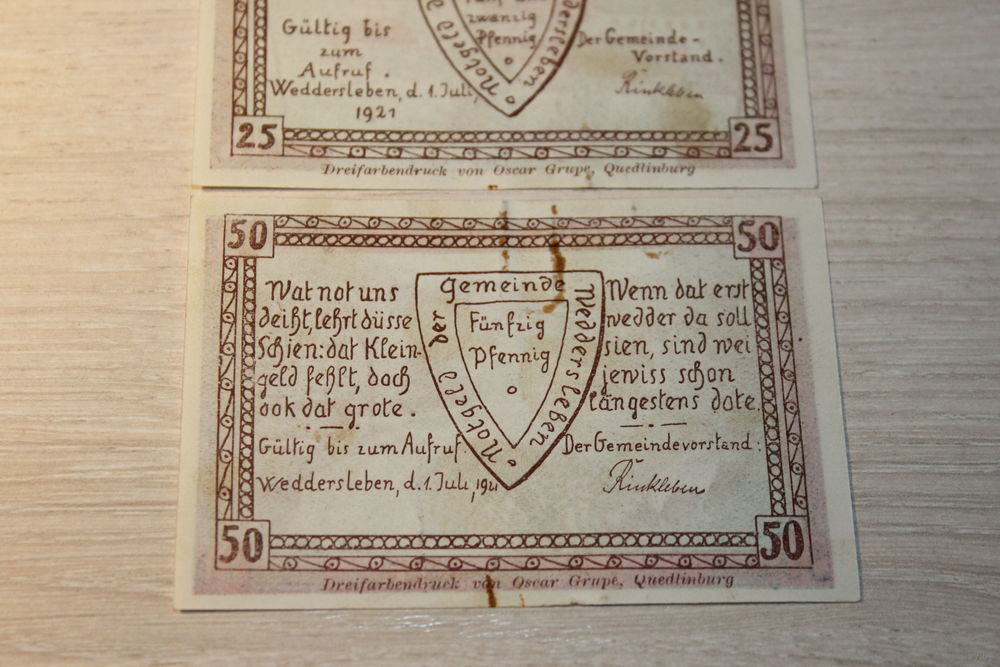 Gültig bis
zum
Aufruf.
Weddersleben, d. 1. Juli,
1921
zwanzig
Pfennig
Notgeld
dersleben
Der Gemeinde-
Vorstand.
Rinkleben
25
25
Dreifarbendruck von Oscar Grupe, Quedlinburg
50
50
Wat not uns
deiht, lehrt düsse
Schien: dat Klein-
geld fehlt, doch
ook dat grote.
Gültig bis zum Aufruf.
Weddersleben, d. 1. Juli, 1921
Notgeld der Gemeinde Weddersleben
Fünfzig
Pfennig
Wenn dat erst
wedder da soll
sien, sind wei
jewiss schon
längestens dote.
Der Gemeindevorstand:
Rinkleben
50
50
Dreifarbendruck von Oscar Grupe, Quedlinburg